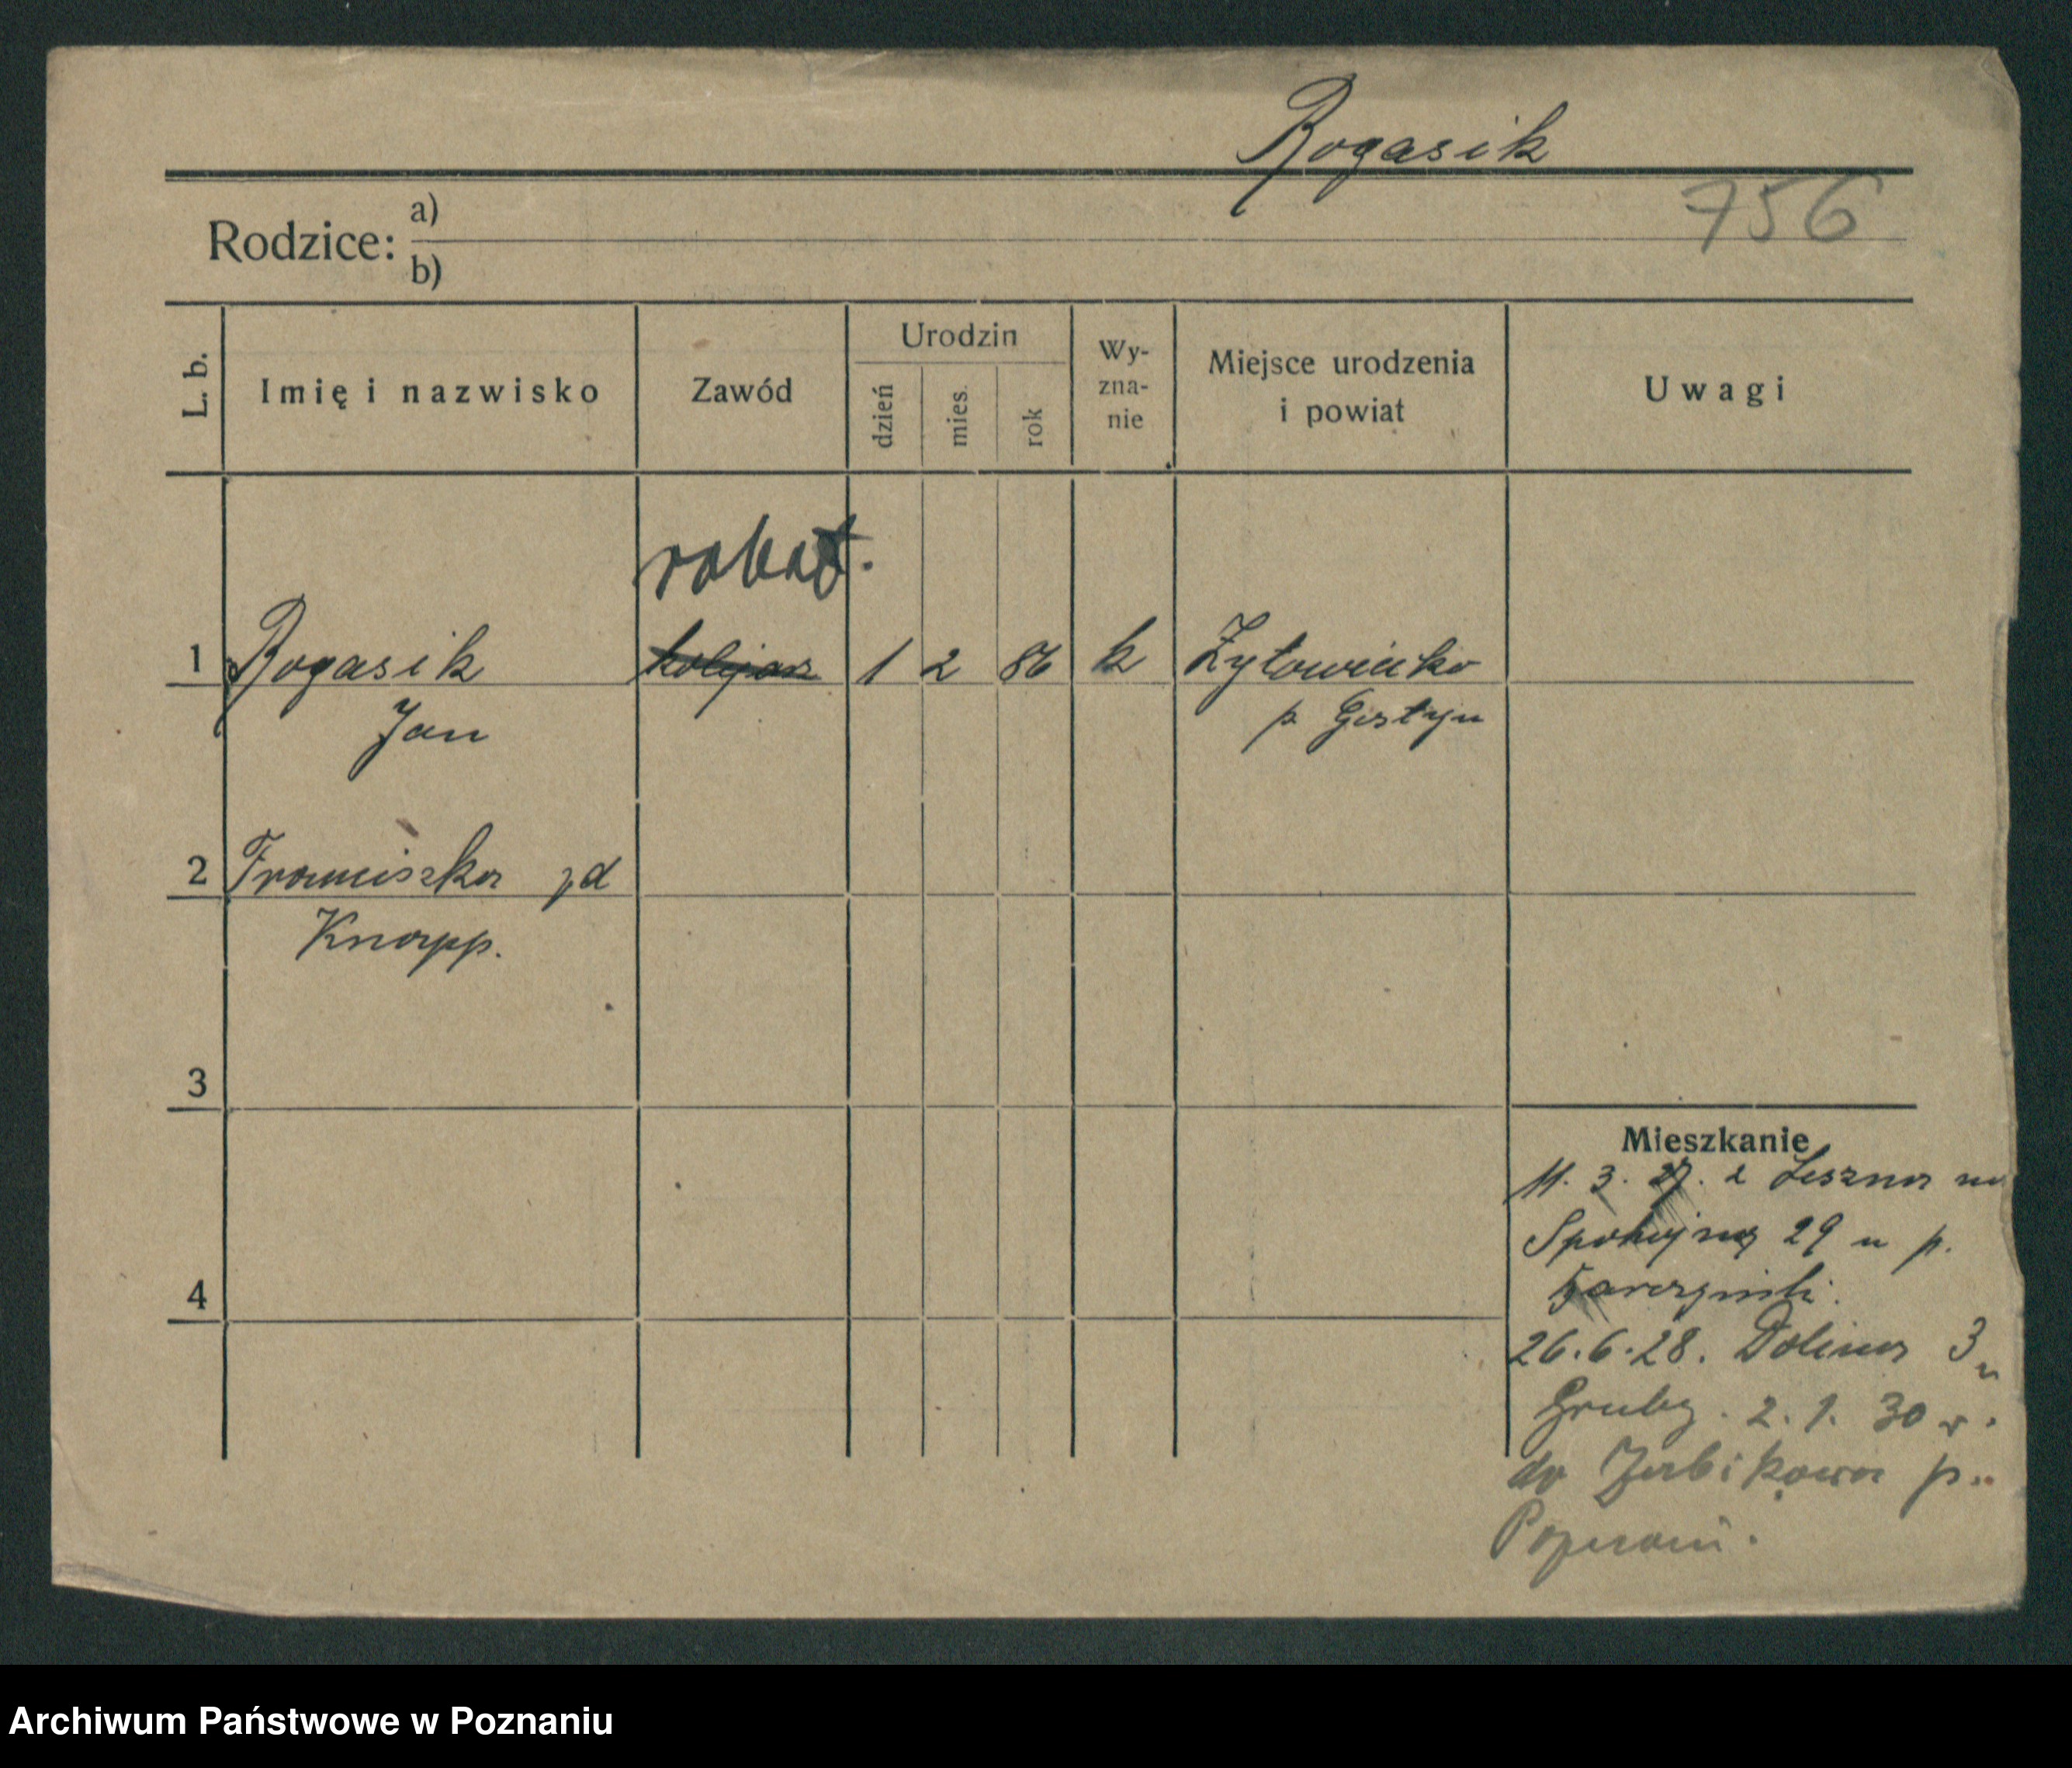 Rogasik
756
Rodzice: a)
b)
L. b. Imię i nazwisko Zawód Urodzin dzień mies. rok Wy-zna-nie Miejsce urodzenia i powiat Uwagi
robot.
1 Rogasik kolejarz 1 2 86 k Żytowiecko
Jan p. Gostyn
2 Franciszka zd
Knapp.
3
4
Mieszkanie
11. 3. 27. z Leszna na
Spokojną 29 u p.
26.6.28. Dolina 3 u
Gruby. 2. 1. 30 r.
do Żabikowa p.
Poznań.
Archiwum Państwowe w Poznaniu